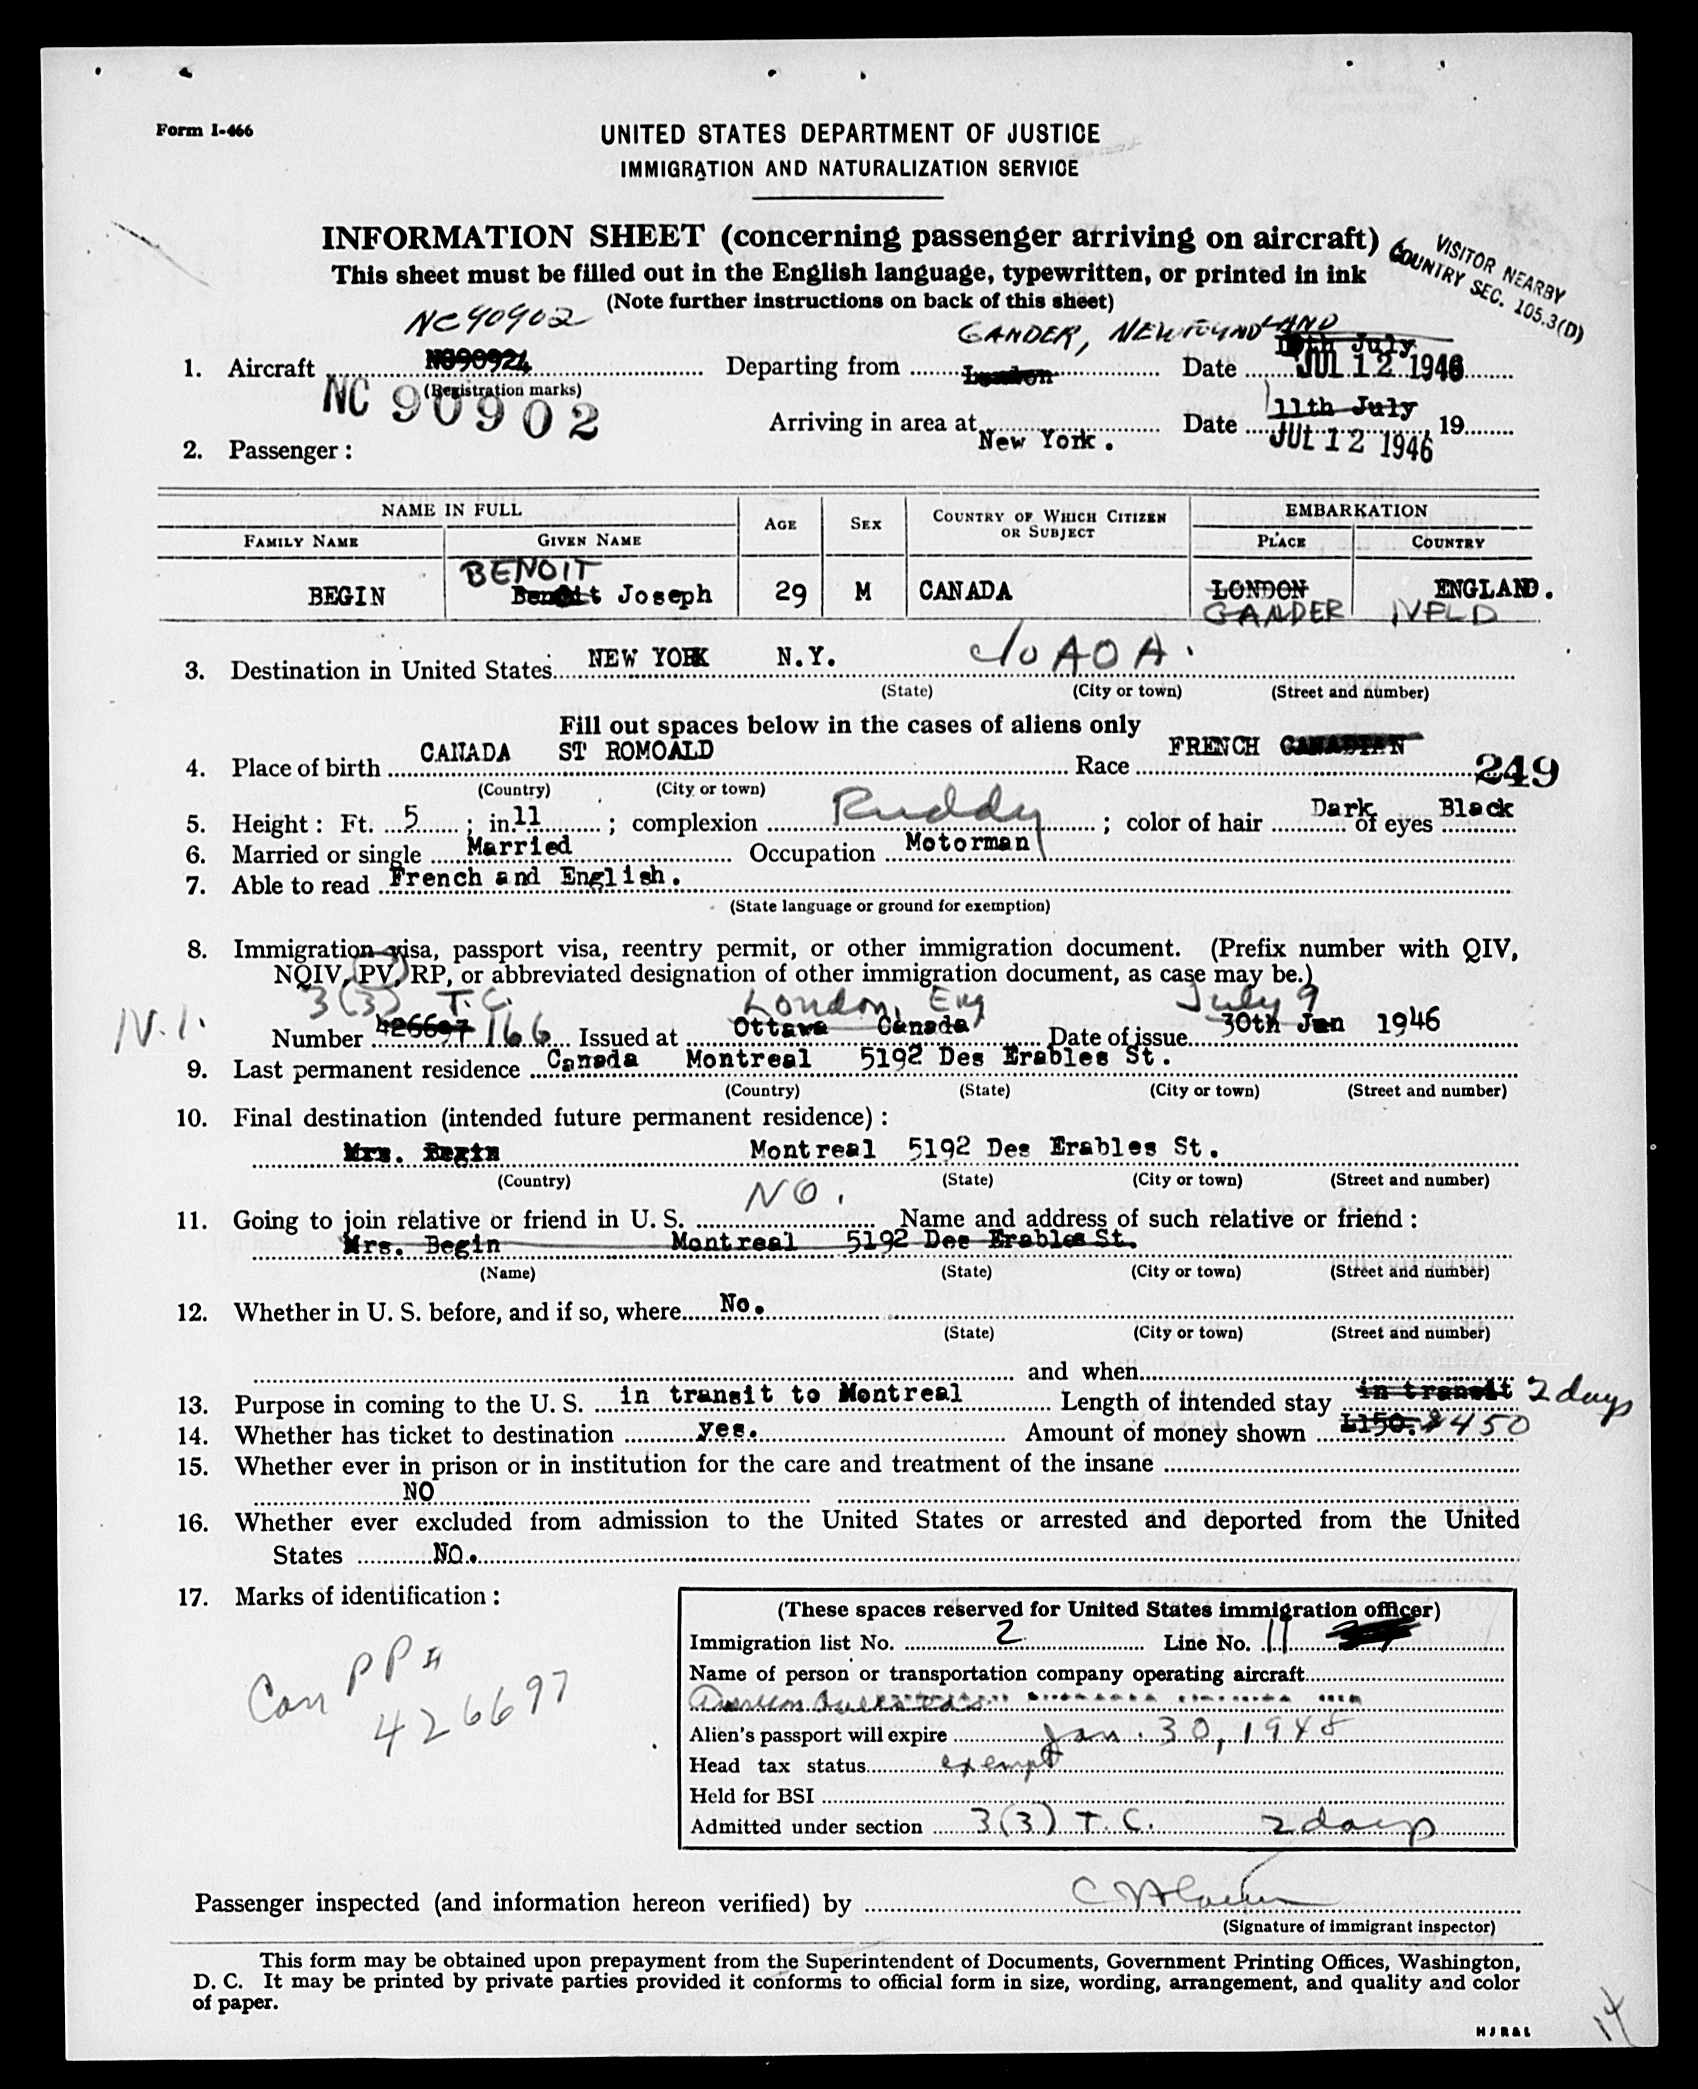 Form I-466
UNITED STATES DEPARTMENT OF JUSTICE
IMMIGRATION AND NATURALIZATION SERVICE
INFORMATION SHEET (concerning passenger arriving on aircraft)
VISITOR NEARBY
COUNTRY SEC. 105.3(D)
This sheet must be filled out in the English language, typewritten, or printed in ink
(Note further instructions on back of this sheet)
NC90902 GANDER, NEWFOUNDLAND 10th July
1. Aircraft NC90924 Departing from London Date JUL 12 1946
(Registration marks)
NC 90902
11th July
Arriving in area at New York. Date JUL 12 1946, 19
2. Passenger:
NAME IN FULL AGE SEX COUNTRY OF WHICH CITIZEN OR SUBJECT EMBARKATION
FAMILY NAME GIVEN NAME PLACE COUNTRY
BENOIT
BEGIN Benoit Joseph 29 M CANADA LONDON ENGLAND.
GANDER NFLD
3. Destination in United States NEW YORK N.Y. c/o AOA.
(State) (City or town) (Street and number)
Fill out spaces below in the cases of aliens only
4. Place of birth CANADA ST ROMOALD Race FRENCH CANADIAN
249
(Country) (City or town)
5. Height: Ft. 5; in. 11; complexion Ruddy; color of hair Dark of eyes Black
6. Married or single Married Occupation Motorman
7. Able to read French and English.
(State language or ground for exemption)
8. Immigration visa, passport visa, reentry permit, or other immigration document. (Prefix number with QIV,
NQIV, PV, RP, or abbreviated designation of other immigration document, as case may be.)
3(3) T.C. London, Eng July 9
N.I. Number 426697 166 Issued at Ottawa Canada Date of issue 30th Jan 1946
9. Last permanent residence Canada Montreal 5192 Des Erables St.
(Country) (State) (City or town) (Street and number)
10. Final destination (intended future permanent residence):
Mrs. Begin Montreal 5192 Des Erables St.
(Country) (State) (City or town) (Street and number)
11. Going to join relative or friend in U. S. NO. Name and address of such relative or friend:
Mrs. Begin Montreal 5192 Des Erables St.
(Name) (State) (City or town) (Street and number)
12. Whether in U. S. before, and if so, where No.
(State) (City or town) (Street and number)
and when
13. Purpose in coming to the U. S. in transit to Montreal Length of intended stay in transit 2 days
14. Whether has ticket to destination yes. Amount of money shown L150. $450
15. Whether ever in prison or in institution for the care and treatment of the insane
NO
16. Whether ever excluded from admission to the United States or arrested and deported from the United
States NO.
17. Marks of identification:
Can PP #
426697
(These spaces reserved for United States immigration officer)
Immigration list No. 2 Line No. 11
Name of person or transportation company operating aircraft
American Overseas
Alien's passport will expire Jan. 30, 1948
Head tax status exempt
Held for BSI
Admitted under section 3(3) T.C. 2 days
Passenger inspected (and information hereon verified) by
(Signature of immigrant inspector)
This form may be obtained upon prepayment from the Superintendent of Documents, Government Printing Offices, Washington,
D. C. It may be printed by private parties provided it conforms to official form in size, wording, arrangement, and quality and color
of paper.
14